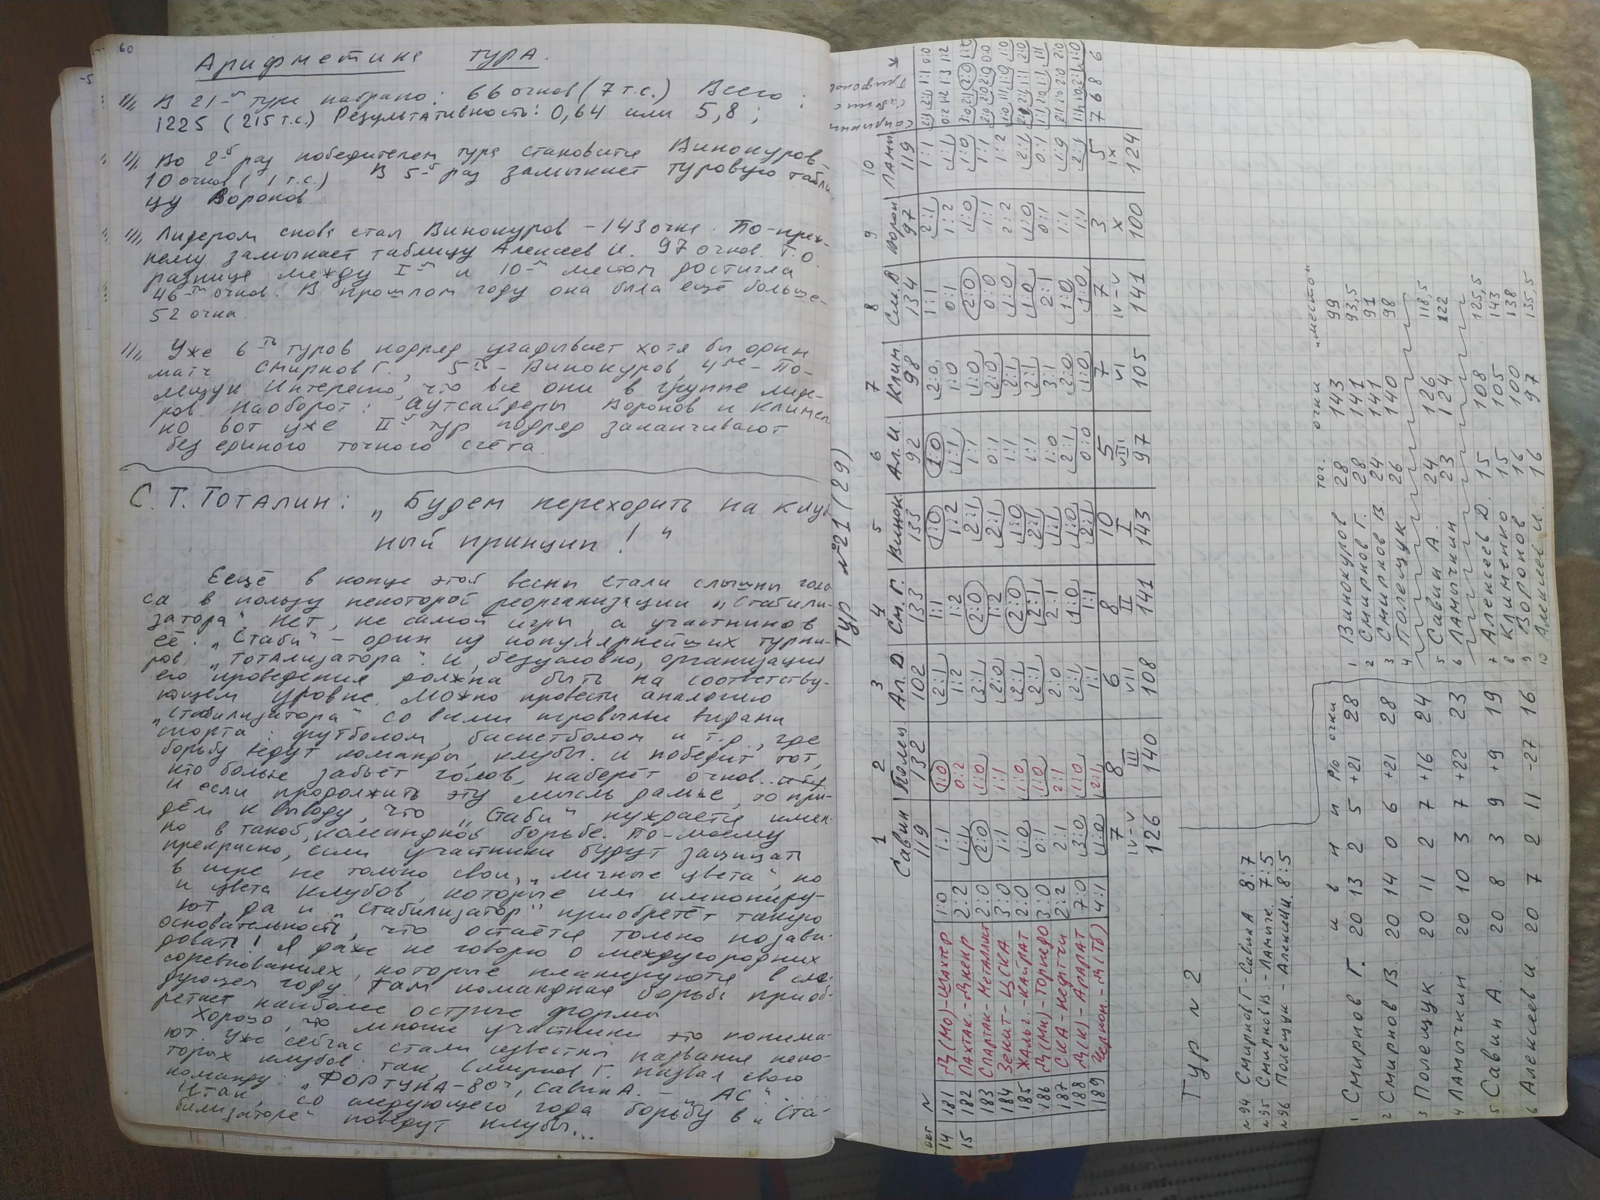 60
Арифметика тура.
В 21-м туре набрано: 66 очков (7 т.с.) Всего:
1225 (215 т.с.) Результативность: 0,64 или 5,8;
Во 2-й раз победителем тура становится Винокуров
10 очков (1 т.с.) В 5-й раз замыкает туровую табли-
цу Воронов
Лидером снова стал Винокуров - 143 очка. По-преж-
нему замыкает таблицу Алексеев И. 97 очков. Т.О.
разница между I-м и 10-м местом достигла
46-ти очков. В прошлом году она была ещё больше -
52 очка.
Уже 6ть туров подряд угадывает хотя бы один
матч Смирнов Г., 5ть - Винокуров, 4ре - По-
лещук. Интересно, что все они в группе лиде-
ров. Наоборот: Аутсайдеры Воронов и Климен
но вот уже II-й тур подряд заканчивают
без единого точного счёта.
С.Т. Тоталин: „Будем переходить на клуб
ный принцип!"
Еещё в конце этой весны стали слышны голо
са в пользу некоторой реорганизации „Стабили-
затора". Нет, не самой игры, а участников
её. „Стаби" - один из популярнейших турни-
ров „Тотализатора". И, безусловно, организация
его проведения должна быть на соответству-
ющем уровне. Можно провести аналогию
„Стабилизатора" со всеми игровыми видами
спорта: футболом, баскетболом и т.р., где
борьбу ведут команды, клубы. И победит тот,
кто больше забьёт голов, наберёт очков.
И если продолжить эту мысль дальше, то при-
дём к выводу, что „Стаби" нуждается имен-
но в такой, командной борьбе. По-моему
прекрасно, если участники будут защищать
в игре не только свои, „личные цвета", но
и цвета клубов, которые им импониру-
ют да и „Стабилизатор" приобретёт такую
основательность, что остаётся только позави-
довать! Я даже не говорю о междугородних
соревнованиях, которые планируются в сле
дующем году. Там командная борьба приоб-
ретает наиболее острые формы
Хорошо, что многие участники это понима-
ют. Уже сейчас стали известны названия неко-
торых клубов: так, Смирнов Г. назвал свою
команду „ФОРТУНА-80", Савин А. - „АС"...
Итак, со следующего года борьбу в „Ста-
билизаторе" поведут клубы...
Тур №21 (29)
1 2 3 4 5 6 7 8 9 10
Савин Полещ Ал.Д. См.Г. Винок Ал.И. Клим. См.В Ворон Ламыч
119 132 102 133 133 92 98 134 97 119
окт N
14 181 Д(Мо)-Шахтёр 1:0 1:1 1:0 2:1 1:1 1:0 1:0 2:0 1:1 2:1 1:1
15 182 Пахтак.-Днепр 2:2 1:1 0:2 1:2 1:2 1:2 1:1 1:0 0:1 1:2 1:1
183 Спартак-Металлист 2:0 2:0 1:0 3:1 2:0 2:1 1:1 1:0 2:0 1:0 1:0
184 Зенит-ЦСКА 3:0 1:1 1:1 2:0 1:2 2:1 0:1 2:0 0:0 1:1 1:1
185 Жальг.-Кайрат 2:0 1:0 1:0 2:1 2:0 1:0 1:1 2:1 1:0 2:2 1:2
186 Д(Мн)-Торпедо 3:0 0:1 1:0 2:1 2:1 2:1 1:1 2:1 1:0 1:0 2:1
187 СКА-Нефтчи 2:2 2:1 2:1 2:0 2:1 1:1 1:0 3:1 2:1 0:1 0:1
188 Д(К)-Арарат 7:0 3:0 1:0 2:1 1:0 1:0 2:1 2:0 1:0 1:1
189 4:1 1:0 2:1 1:1 1:1 2:1 0:0 1:0 1:0 1:1 2:1
7 8 6 8 10 5 7 7 3 5
IV-V III VII II I VIII VI IV-V X IX
126 140 108 141 143 97 105 141 100 124
7 6 8 6
Тур №2
№94 Смирнов Г - Савин А 8:7
№95 Смирнов В. - Ламыч. 7:5
№96 Полещук - Алексеев И. 8:5
и в н п Р/о очки
1 Смирнов Г. 20 13 2 5 +21 28
2 Смирнов В. 20 14 0 6 +21 28
3 Полещук 20 11 2 7 +16 24
4 Ламычкин 20 10 3 7 +22 23
5 Савин А. 20 8 3 9 +9 19
6 Алексеев И 20 7 2 11 -27 16
тог. очки „место"
1 Винокуров 28 143 99
2 Смирнов Г. 28 141 93,5
3 Смирнов В. 24 141 91
4 Полещук 26 140 98
5 Савин А. 24 126 118,5
6 Ламычкин 23 124 122
7 Алексеев Д. 15 108 125,5
8 Клименко 15 105 143
9 Воронов 16 100 138
10 Алексеев И. 16 97 135,5